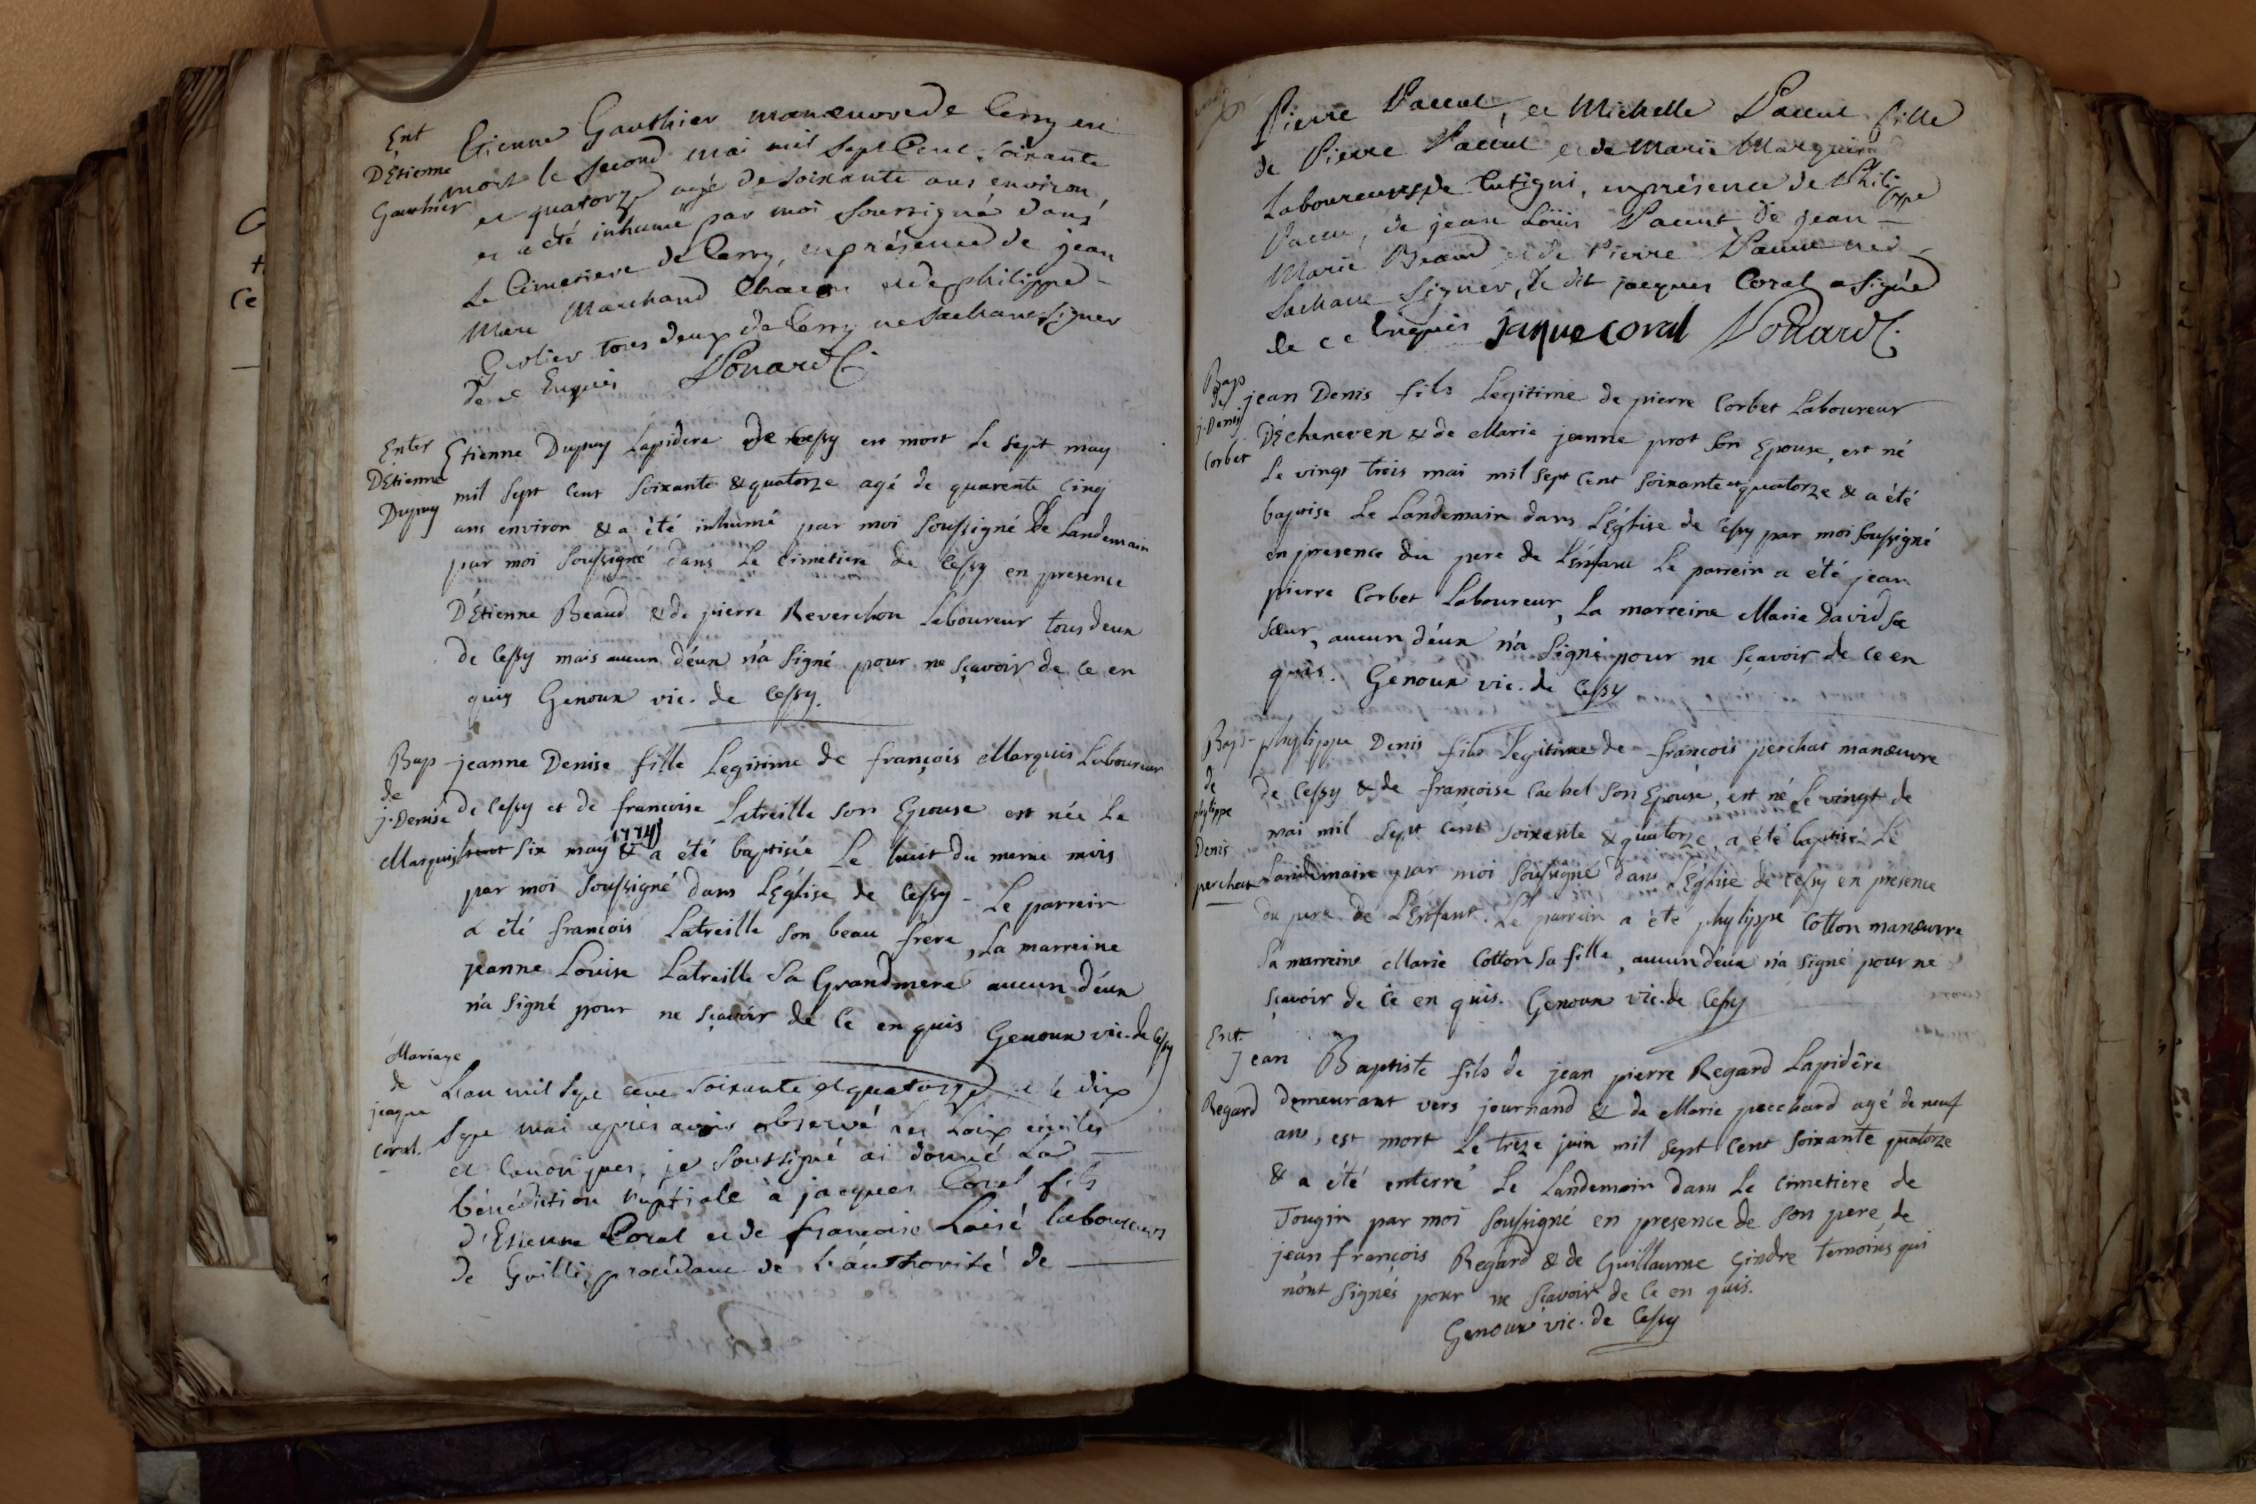 Ent
D'Etienne
Gauthier
Etienne Gauthier manœuvre de Cessy est
mort le second mai mil sept Cent soixante
et quatorze agé de soixante ans environ
et a été inhumé par moi soussigné dans
le Cimetiere de Cessy, en présence de jean
Marc Marchand et de philippe
tous deux de Cessy ne sachant signer
de ce Enquis
Enter
D'Etienne
Dupuy
Etienne Dupuy Lapidere de Cessy est mort le sept may
mil sept cent soixante & quatorze agé de quarente cinq
ans environ & a été inhumé par moi soussigné le Landemain
par moi soussigné dans le cimetiere de Cessy en presence
D'Etienne Beaud & de pierre Reverchon Laboureur tous deux
de Cessy mais aucun d'eux n'a signé pour ne sçavoir de ce en
quis Genoux vic. de Cessy.
Bap
de
j. Denise
Marquis
jeanne Denise fille Legitime de françois Marquis Laboureur
de Cessy et de francoise Latreille son Epouse est née le
six may 1774 & a été baptisée le huit du meme mois
par moi soussigné dans L'Eglise de Cessy - Le parrein
a été françois Latreille son beau frere, La marreine
jeanne Louise Latreille sa Grandmere aucun d'eux
n'a signé pour ne sçavoir de ce en quis Genoux vic. de Cessy
Mariage
de
jeaque
Coral.
L'an mil sept cent soixante et quatorze et le dix
sept mai après avoir observé les Loix civiles
et canoniques, je soussigné ai donné la
bénédiction nuptiale à jacques Coral fils
d'Etienne Coral et de françoise Loisé laboureurs
de Grilli, procédant de l'authorité de
Pierre Paccut, et Michelle Paccut fille
de Pierre Paccut et de Marie Marquis
Laboureurs de Cutigni, en présence de Philippe
Paccut, de jean Loüis Paccut, de jean
Marie Beaud et de Pierre Paccut ne
sachant signer, le dit jacques Coral a signé
de ce Enquis jaque coral
Bap
de
j. Denis
Corbet
jean Denis fils Legitime de pierre Corbet Laboureur
D'Echeneven & de Marie jeanne prot son Epouse, est né
Le vingt trois mai mil sept cent soixante et quatorze & a été
baptise Le Landemain dans L'Eglise de Cessy par moi soussigné
en presence du pere de L'Enfant Le parrein a été jean
pierre Corbet Laboureur, La marreine Marie David sa
sœur, aucun d'eux n'a signé pour ne sçavoir de ce en
quis. Genoux vic. de Cessy
Bap-
de
phylippe
Denis
perchat
phylippe Denis fils legitime de françois perchat manœuvre
de Cessy & de françoise Cachet son Epouse, est né le vingt de
mai mil sept cent soixante & quatorze, a été baptisé Le
Landemain par moi soussigné dans L'Eglise de Cessy en présence
du pere de L'Enfant. Le parrein a été phylippe Cotton manœuvre
La marreine Marie Cotton sa fille, aucun d'eux n'a signé pour ne
sçavoir de ce en quis. Genoux vic. de Cessy
Ent.
Regard
jean Baptiste fils de jean pierre Regard Lapidère
demeurant vers journand & de Marie pecchard agé de neuf
ans, est mort Le treze juin mil sept cent soixante quatorze
& a été enterré Le Landemain dans Le cimetiere de
Tougin par moi soussigné en presence de son pere, de
jean françois Regard & de Guillaume Gindre temoins qui
n'ont signés pour ne sçavoir de ce en quis.
Genoux vic. de Cessy